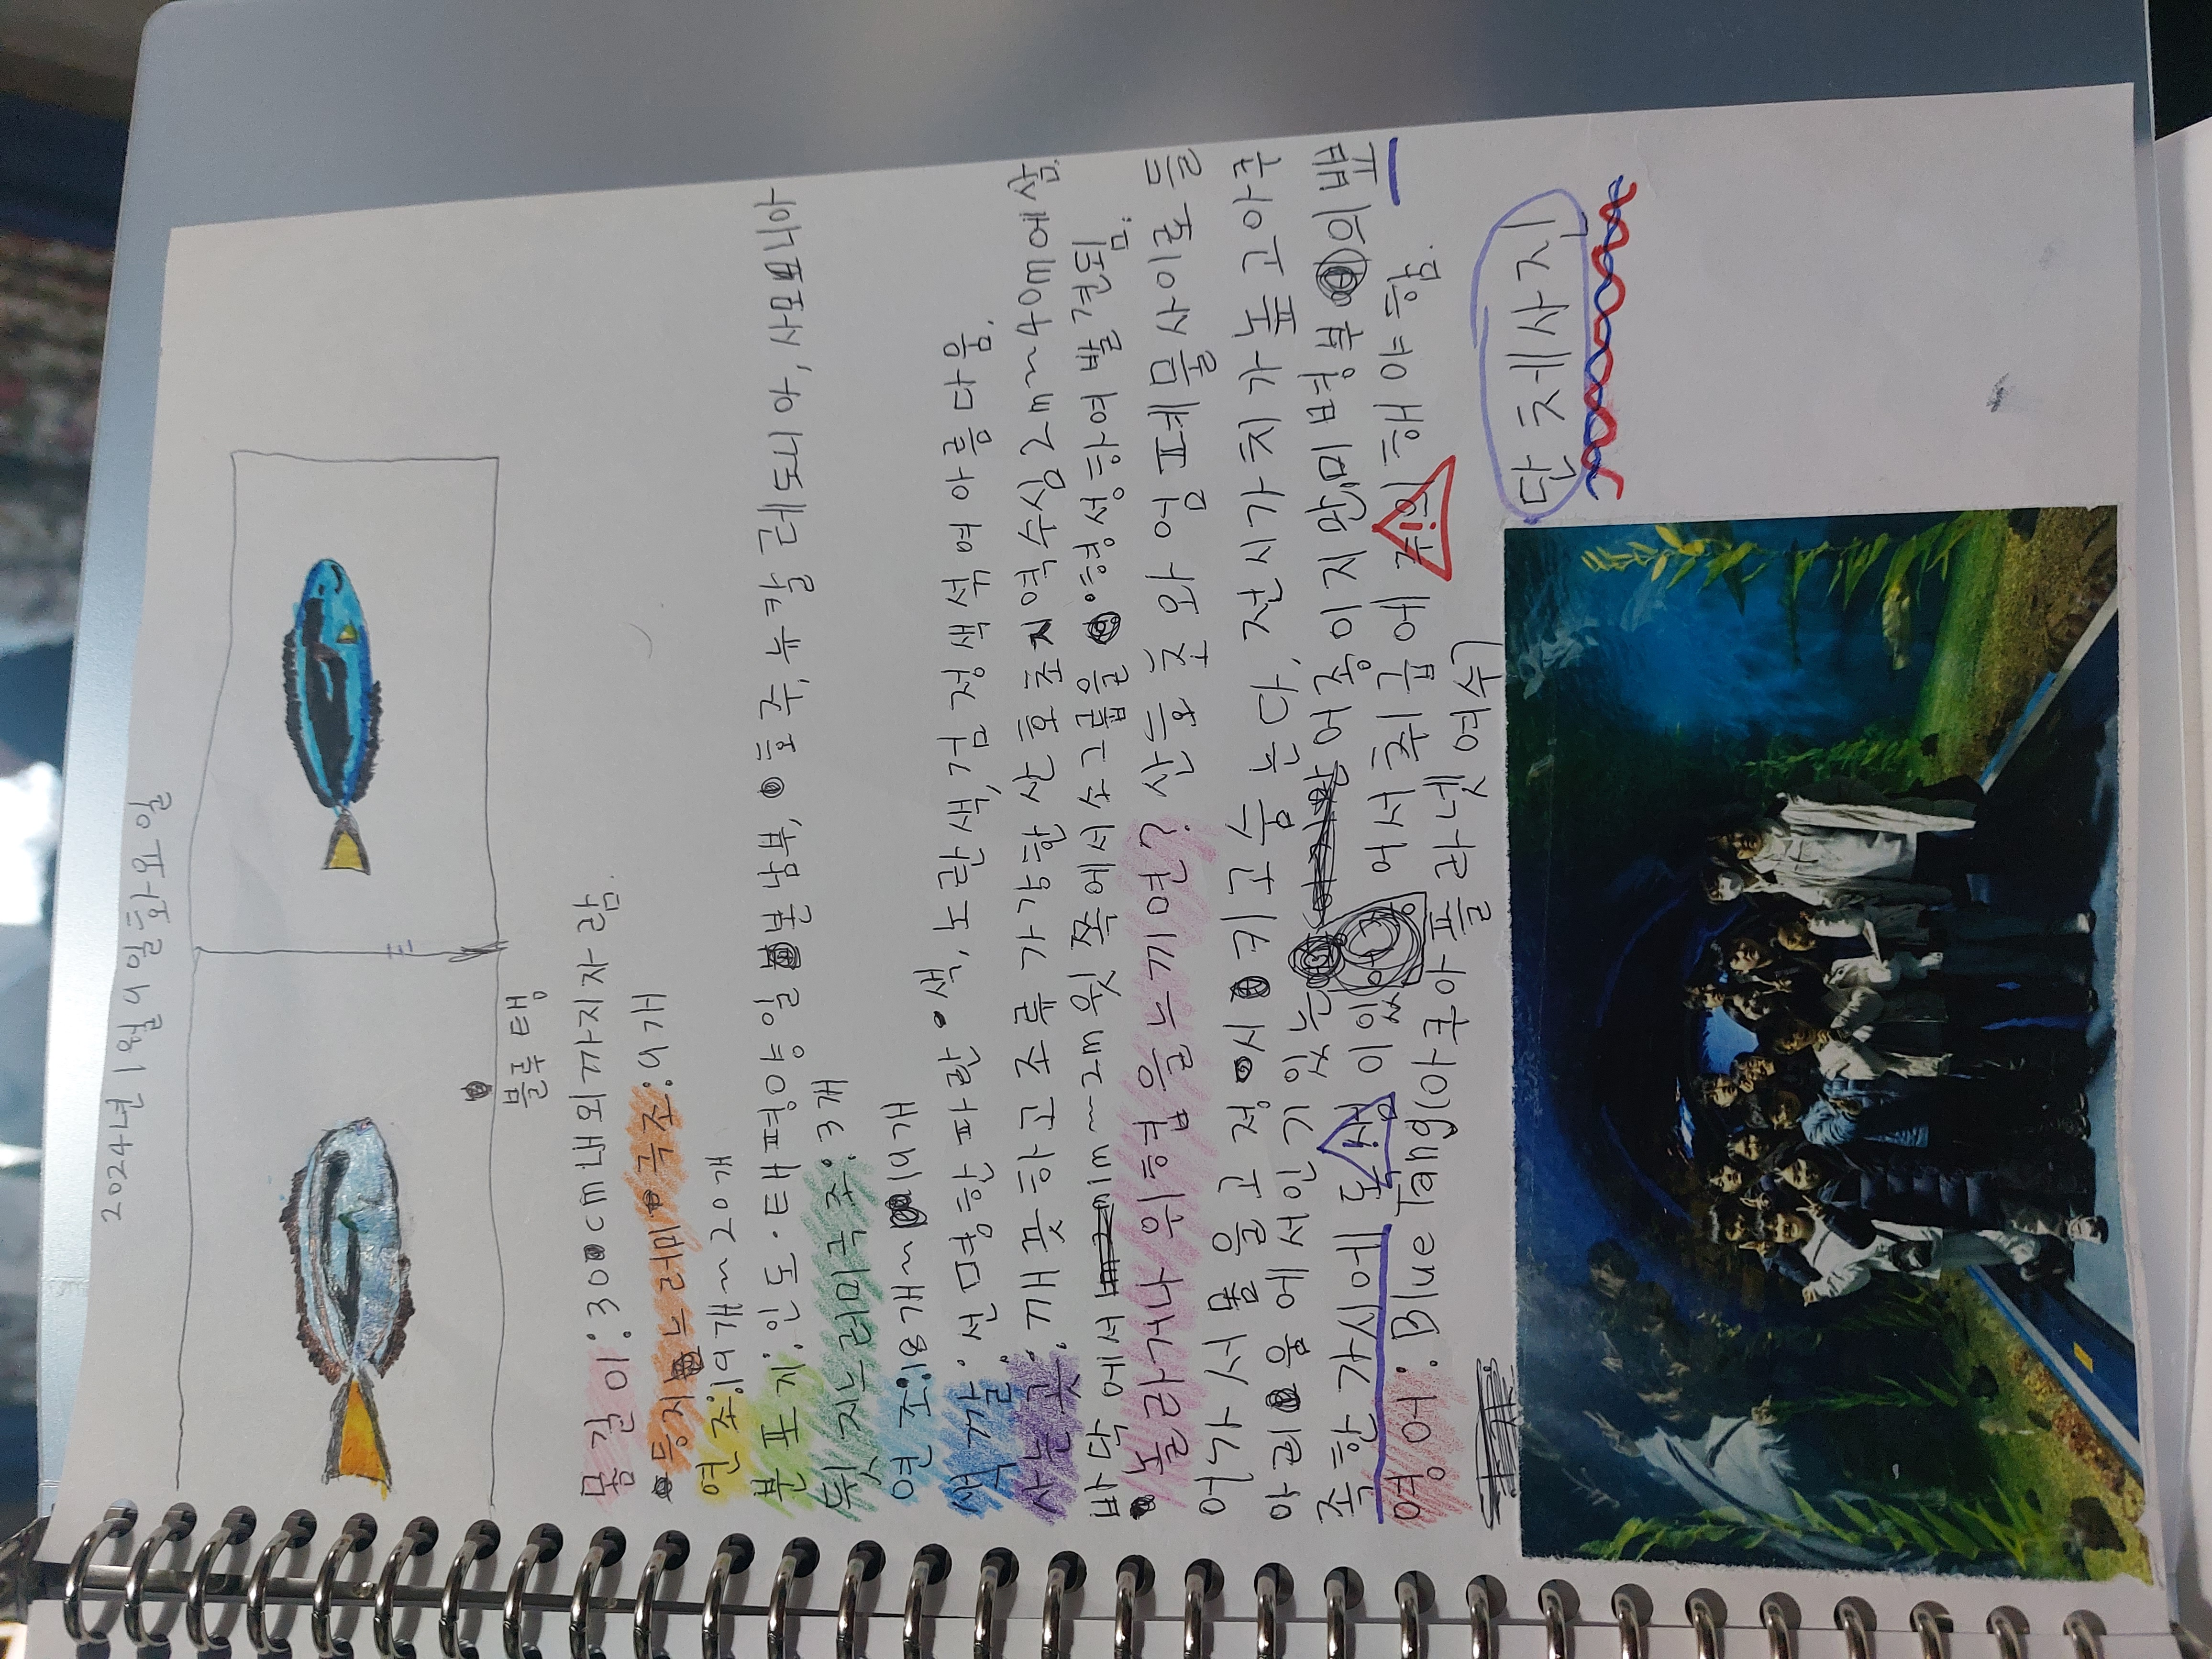 2024년 1월 9일 화요일
블루탱
몸길이: 30cm내외까지자람.
등지느러미 극조: 9개
연조: 19개~20개
분포지: 인도·태평양 일본남부, 호주, 뉴칼레도니아, 사모니아
뒷지느러미극조: 3개
연조: 18개~19개
색깔: 선명한 파란색, 노란색, 검정색 섞여 아름다움.
사는곳: 깨끗하고 조류가 강한 산호초지역 수심 2m~40m에 삼.
바닥에서 1m~2m윗쪽에서 소그룹을 형성하여 발견됨.
놀라거나 위협을 느끼면? 산호초와 엄폐물 사이로 들
어가서 몸을 고정시키고 숨는다. 전시가치가 높고 아쿠
아리움에서 인기있는 어종이지만, 미병부의 뾰
족한 가시에 독성이 있어서 취급에 주의해야함.
영어: Blue Tang(아쿠아플라넷 여수)
단체사진